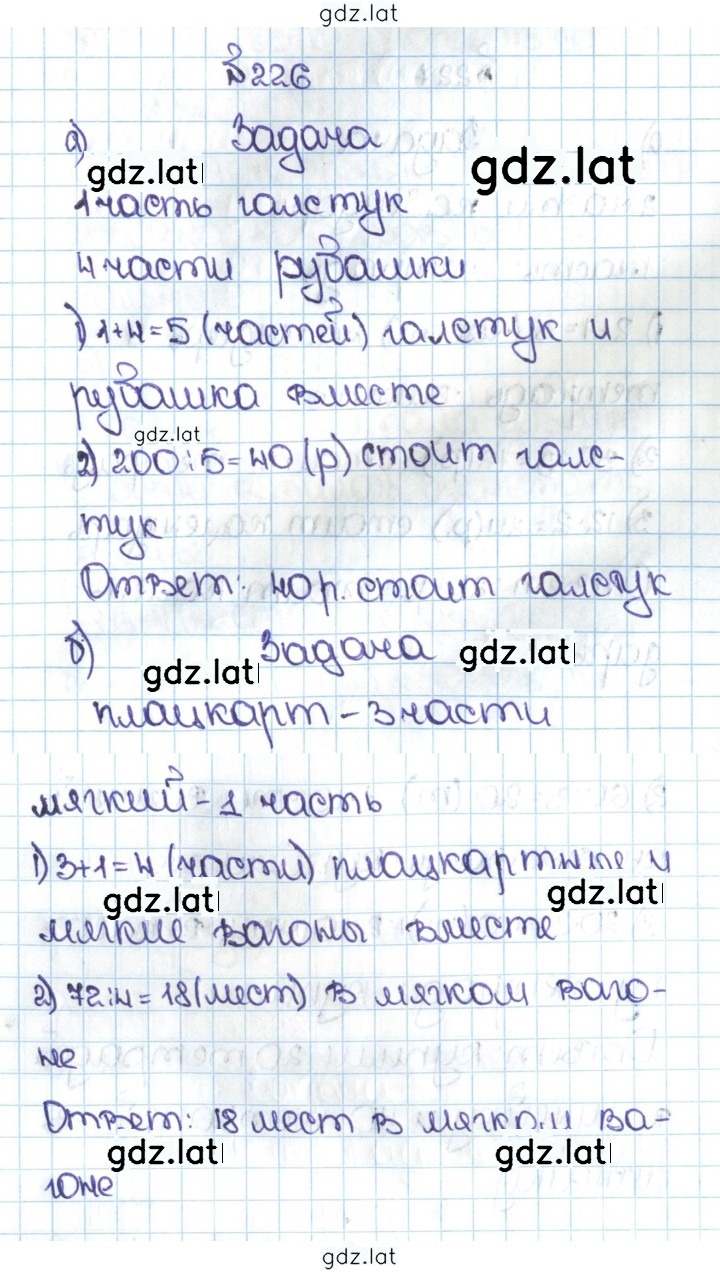 gdz.lat
№226
а) Задача
gdz.lat gdz.lat
1 часть галстук
4 части рубашки
1) 1+4=5 (частей) галстук и
рубашка вместе
gdz.lat
2) 200:5=40 (р) стоит галс-
тук
Ответ: 40 р. стоит галстук
б) Задача gdz.lat
gdz.lat
плацкарт – 3 части
мягкий – 1 часть
1) 3+1=4 (части) плацкартные и
gdz.lat gdz.lat
мягкие вагоны вместе
2) 72:4=18 (мест) в мягком ваго-
не
Ответ: 18 мест в мягком ва-
gdz.lat gdz.lat
гоне
gdz.lat